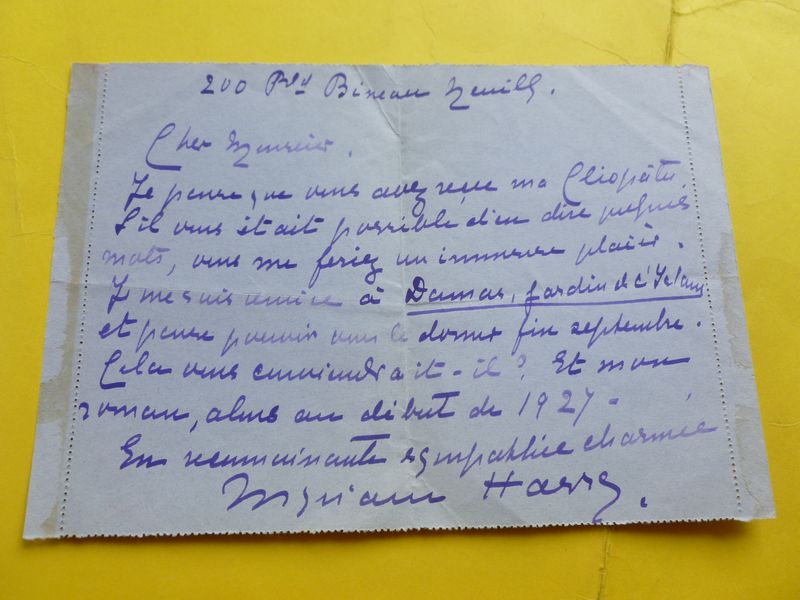 200 Bld Bineau Neuilly.
Cher Monsieur.
Je pense que vous avez reçu ma Cléopâtre
S'il vous était possible d'en dire quelques
mots, vous me feriez un immense plaisir.
Je me suis remise à Damas, jardin de l'Islam
et pense pouvoir vous le donner fin septembre.
Cela vous conviendrait-il? Et mon
roman, alors au début de 1927.
En reconnaissante sympathie charmée
Myriam Harry.